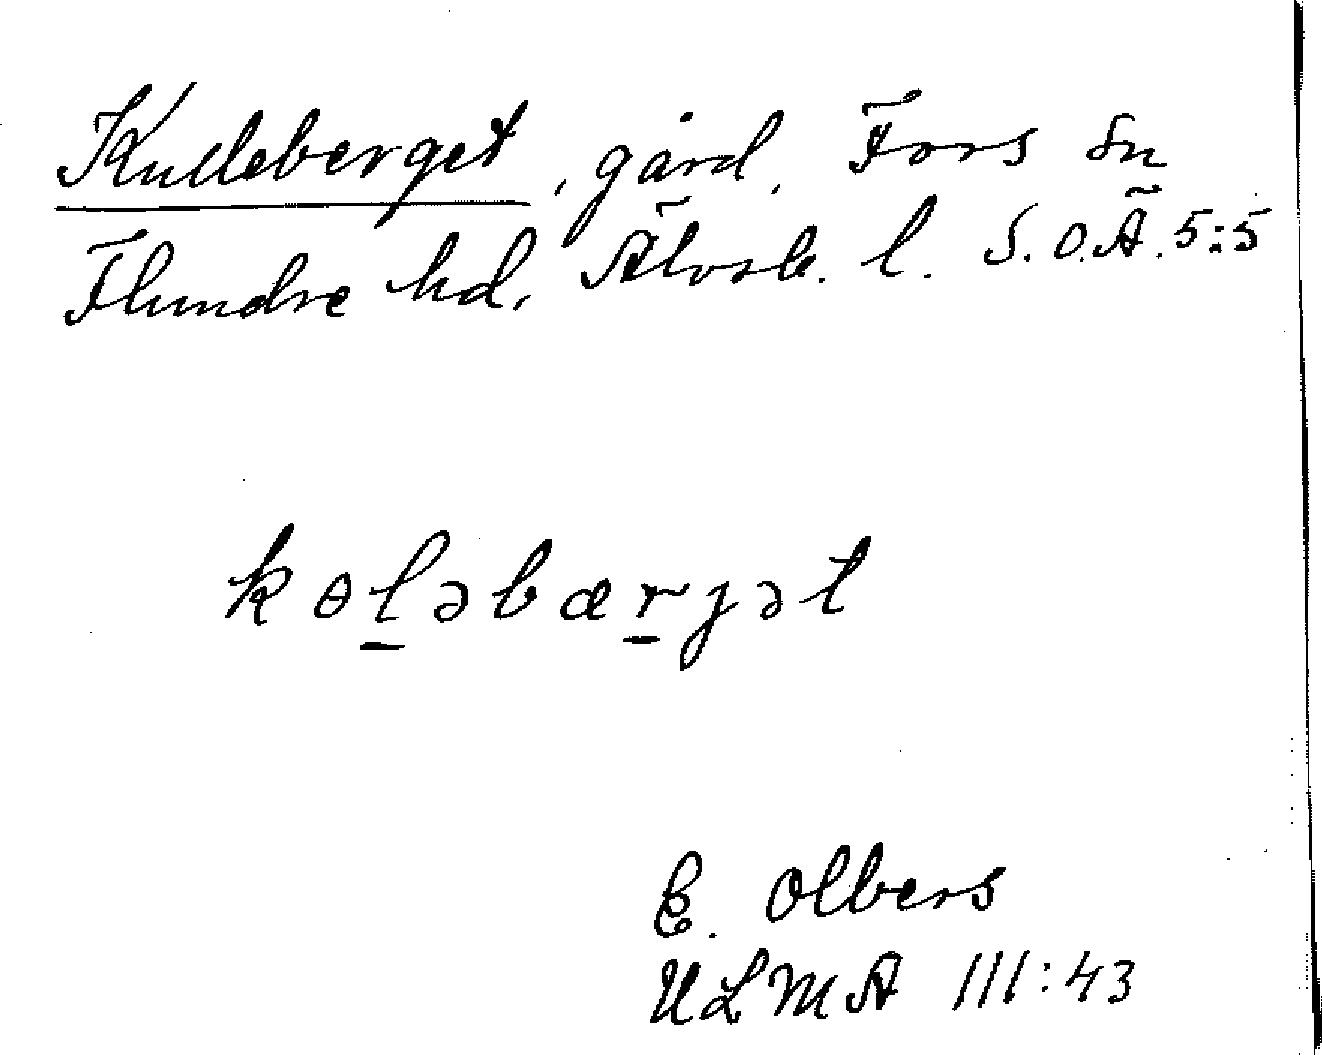 Kulleberget, gård, Fors sn
Flundre hd, Älvsb. l. S.O.Ä. 5:5
kɵl̲əbær̲jət
E. Olbers
ULMA III:43